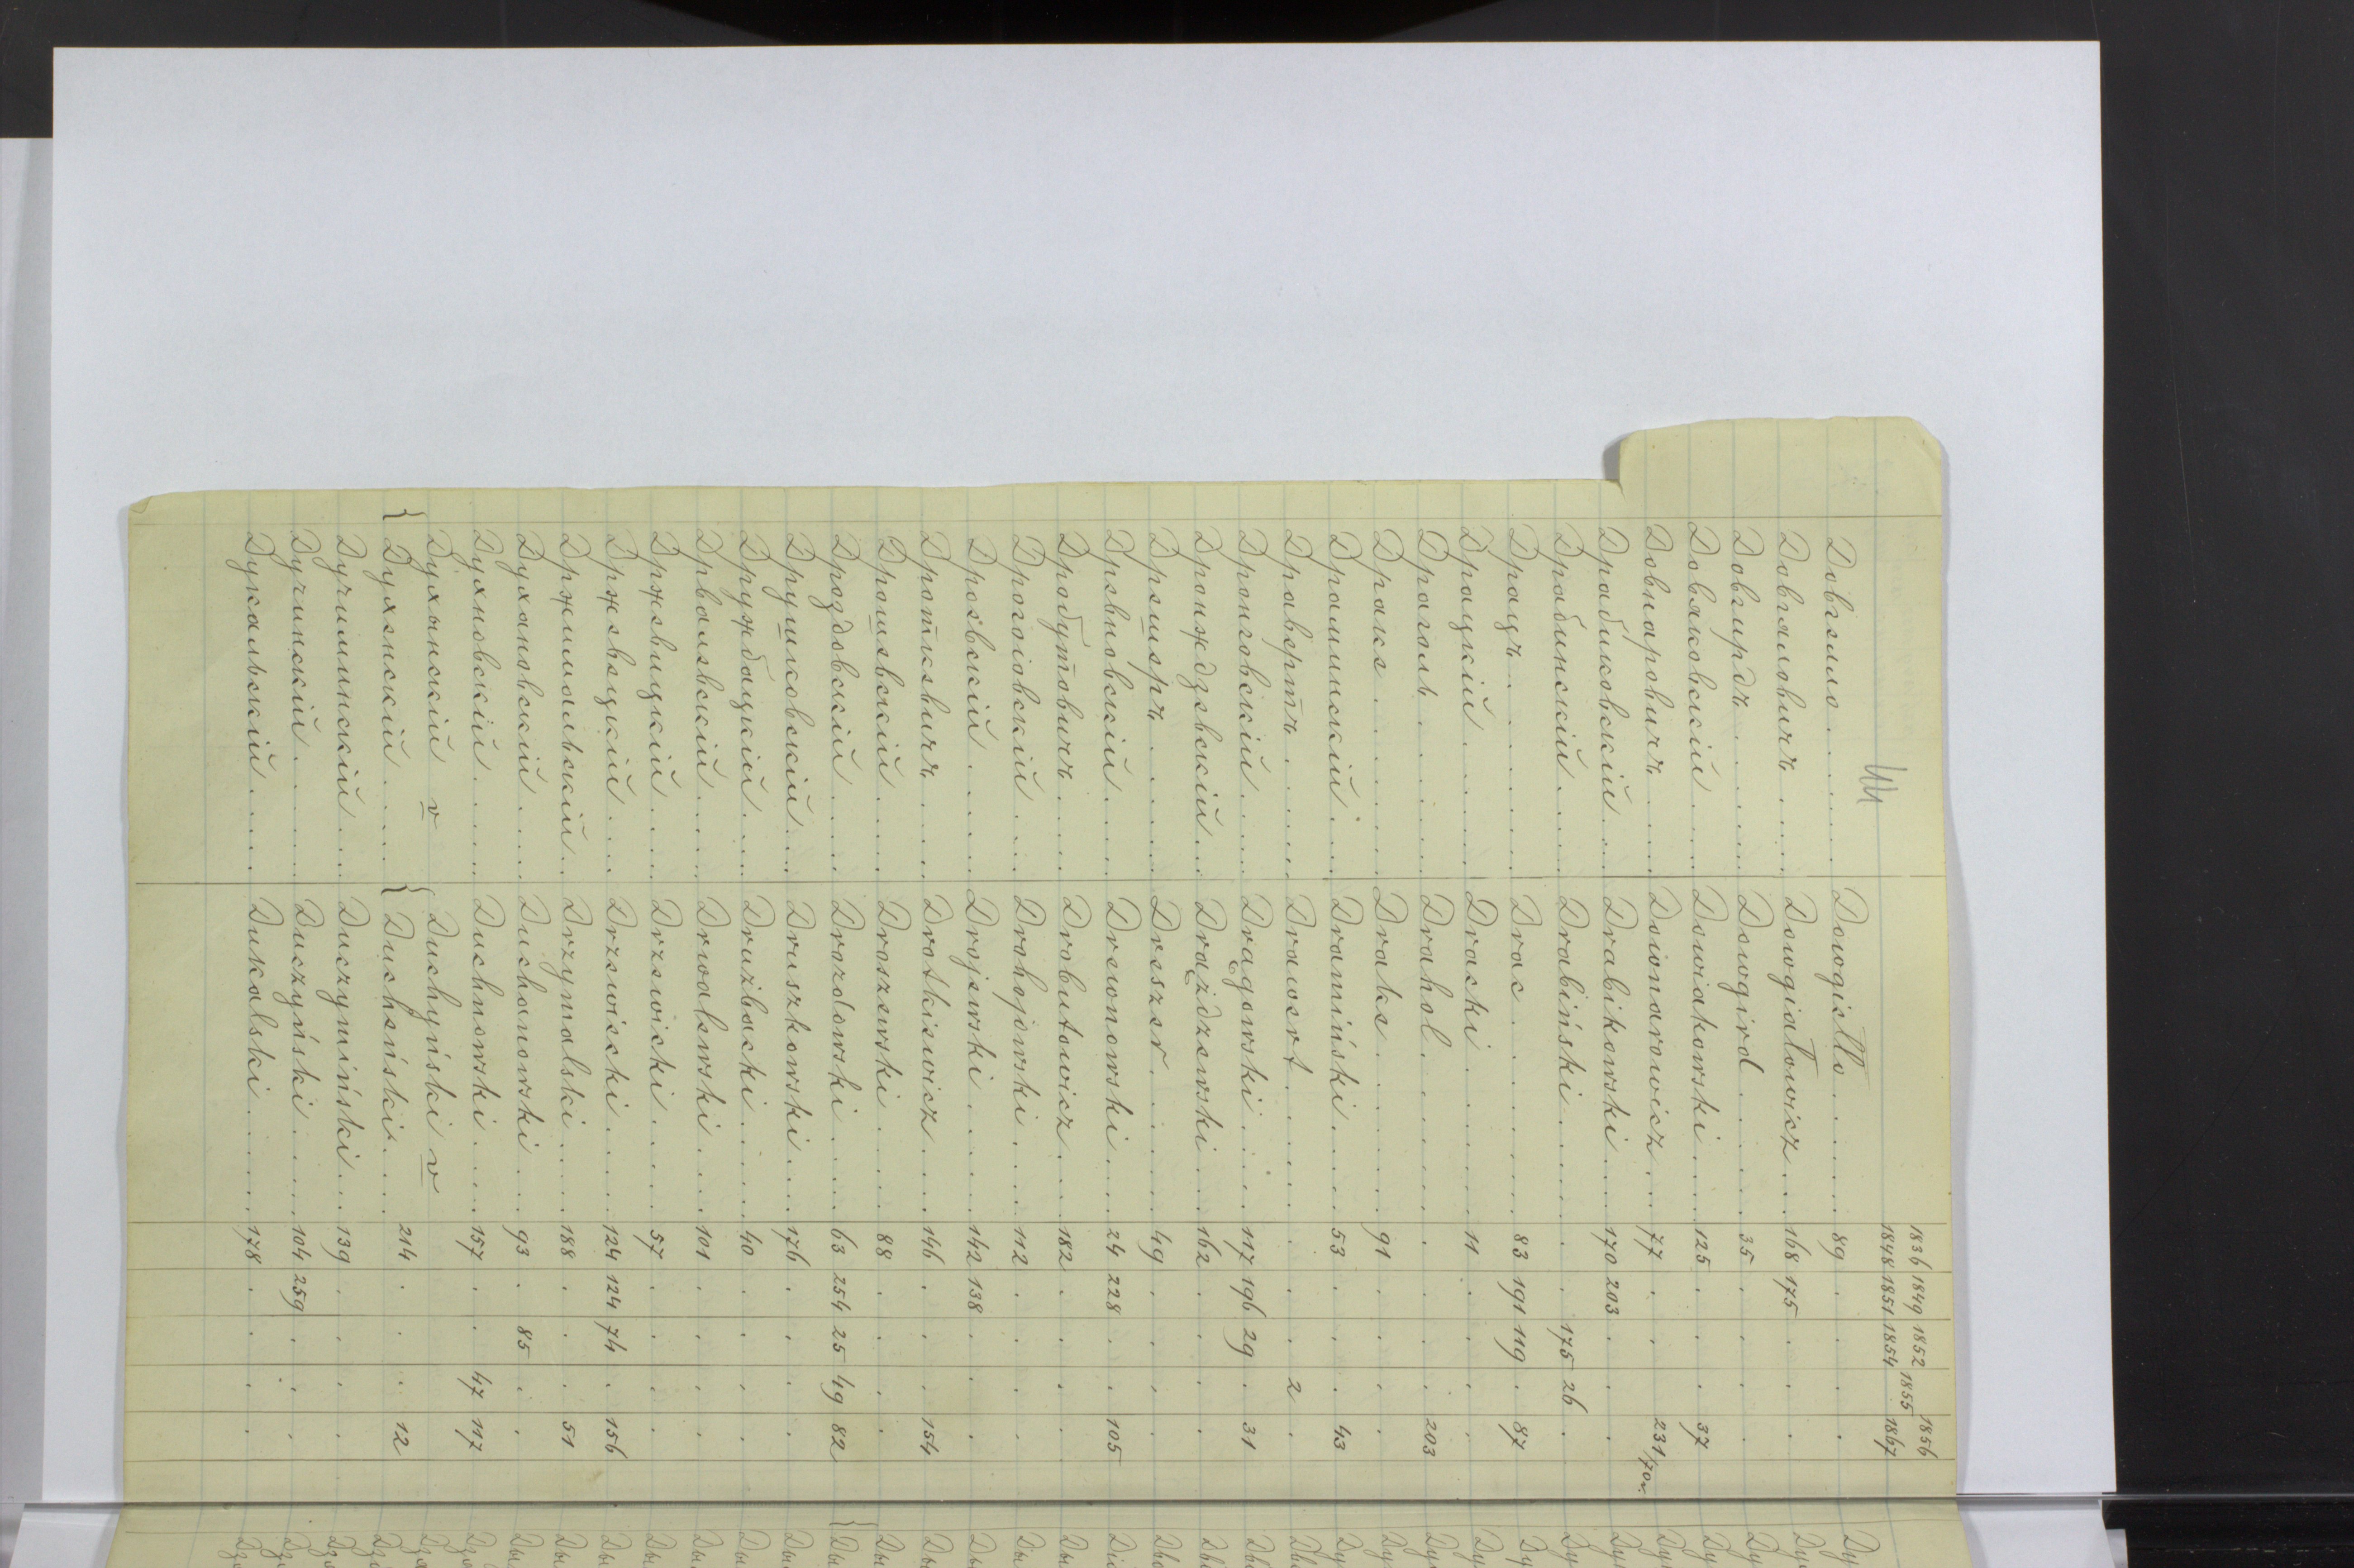 44
1836 1849 1852 1856
1848 1851 1854 1855 1867
Довгелло . . . . . . Dowgiełło . . . . . . 89 . . . .
Довгяловичъ . . . . Dowgiałowicz . . . 168 175 . . .
Довгирдъ . . . . . . Dowgird . . . . . . 35 . . . .
Довяковскій . . . . Dowiakowski . . . . 125 . . . 37
Довнаровичъ . . . . Dowionarowicz . . . 77 . . . 231/70 r.
Драбиковскій . . . Drabikowski . . . . 170 203 . . .
Драбинскій . . . . Drabiński . . . . . . . 175 26 .
Драцъ . . . . . . . Drac . . . . . . . 83 191 119 . 87
Драцкій . . . . . . Dracki . . . . . . 11 . . . .
Драголь . . . . . . Drahol . . . . . . . . . . 203
Драке . . . . . . . Drake . . . . . . 91 . . . .
Драминскій . . . . Dramiński . . . . . 53 . . . 43
Драверт̄ъ . . . . . Drawert . . . . . . . . . 2 .
Дронговскій . . . . Drągowski . . . . . 117 196 29 . 31
Дронждзевскій . . . Drążdżewski . . . 162 . . . .
Дреш̲еръ . . . . . . Dreszer . . . . . . 49 . . . .
Древновскій . . . . Drewnowski . . . . 24 228 . . 105
Дробут̄овичъ . . . . Drobutowicz . . . . 182 . . . .
Дрогіовскій . . . . Drohojowski . . . . 112 . . . .
Дроевскій . . . . . Drojewski . . . . . 142 138 . . .
Дрот̄кевичъ . . . . Drotkiewicz . . . . 146 . . . 154
Дрош̲евскій . . . . Droszewski . . . . . 88 . . . .
Дроздовскій . . . . Drozdowski . . . . 63 254 25 49 82
Друш̲ковскій . . . . Druszkowski . . . . 176 . . . .
Дружбацкій . . . . Drużbacki . . . . . 40 . . . .
Дрвалевскій . . . . Drwalewski . . . . 101 . . . .
Држевицкій . . . . Drzewicki . . . . . 57 . . . .
Држевецкій . . . . Drzewiecki . . . . 124 124 74 . 156
Држимальскій . . . Drzymalski . . . . 188 . . . 51
Духановскій . . . . Duchanowski . . . 93 . 85 . .
Духновскій . . . . Duchnowski . . . . 157 . . 47 117
Духынскій v Duchyński v
{ Духенскій . . . . { Ducheński . . . . 214 . . . 12
Дучиминскій . . . . Duczymiński . . . 139 . . . .
Дучинскій . . . . . Duczyński . . . . 104 259 . . .
Дукальскій . . . . Dukalski . . . . . 178 . . . .